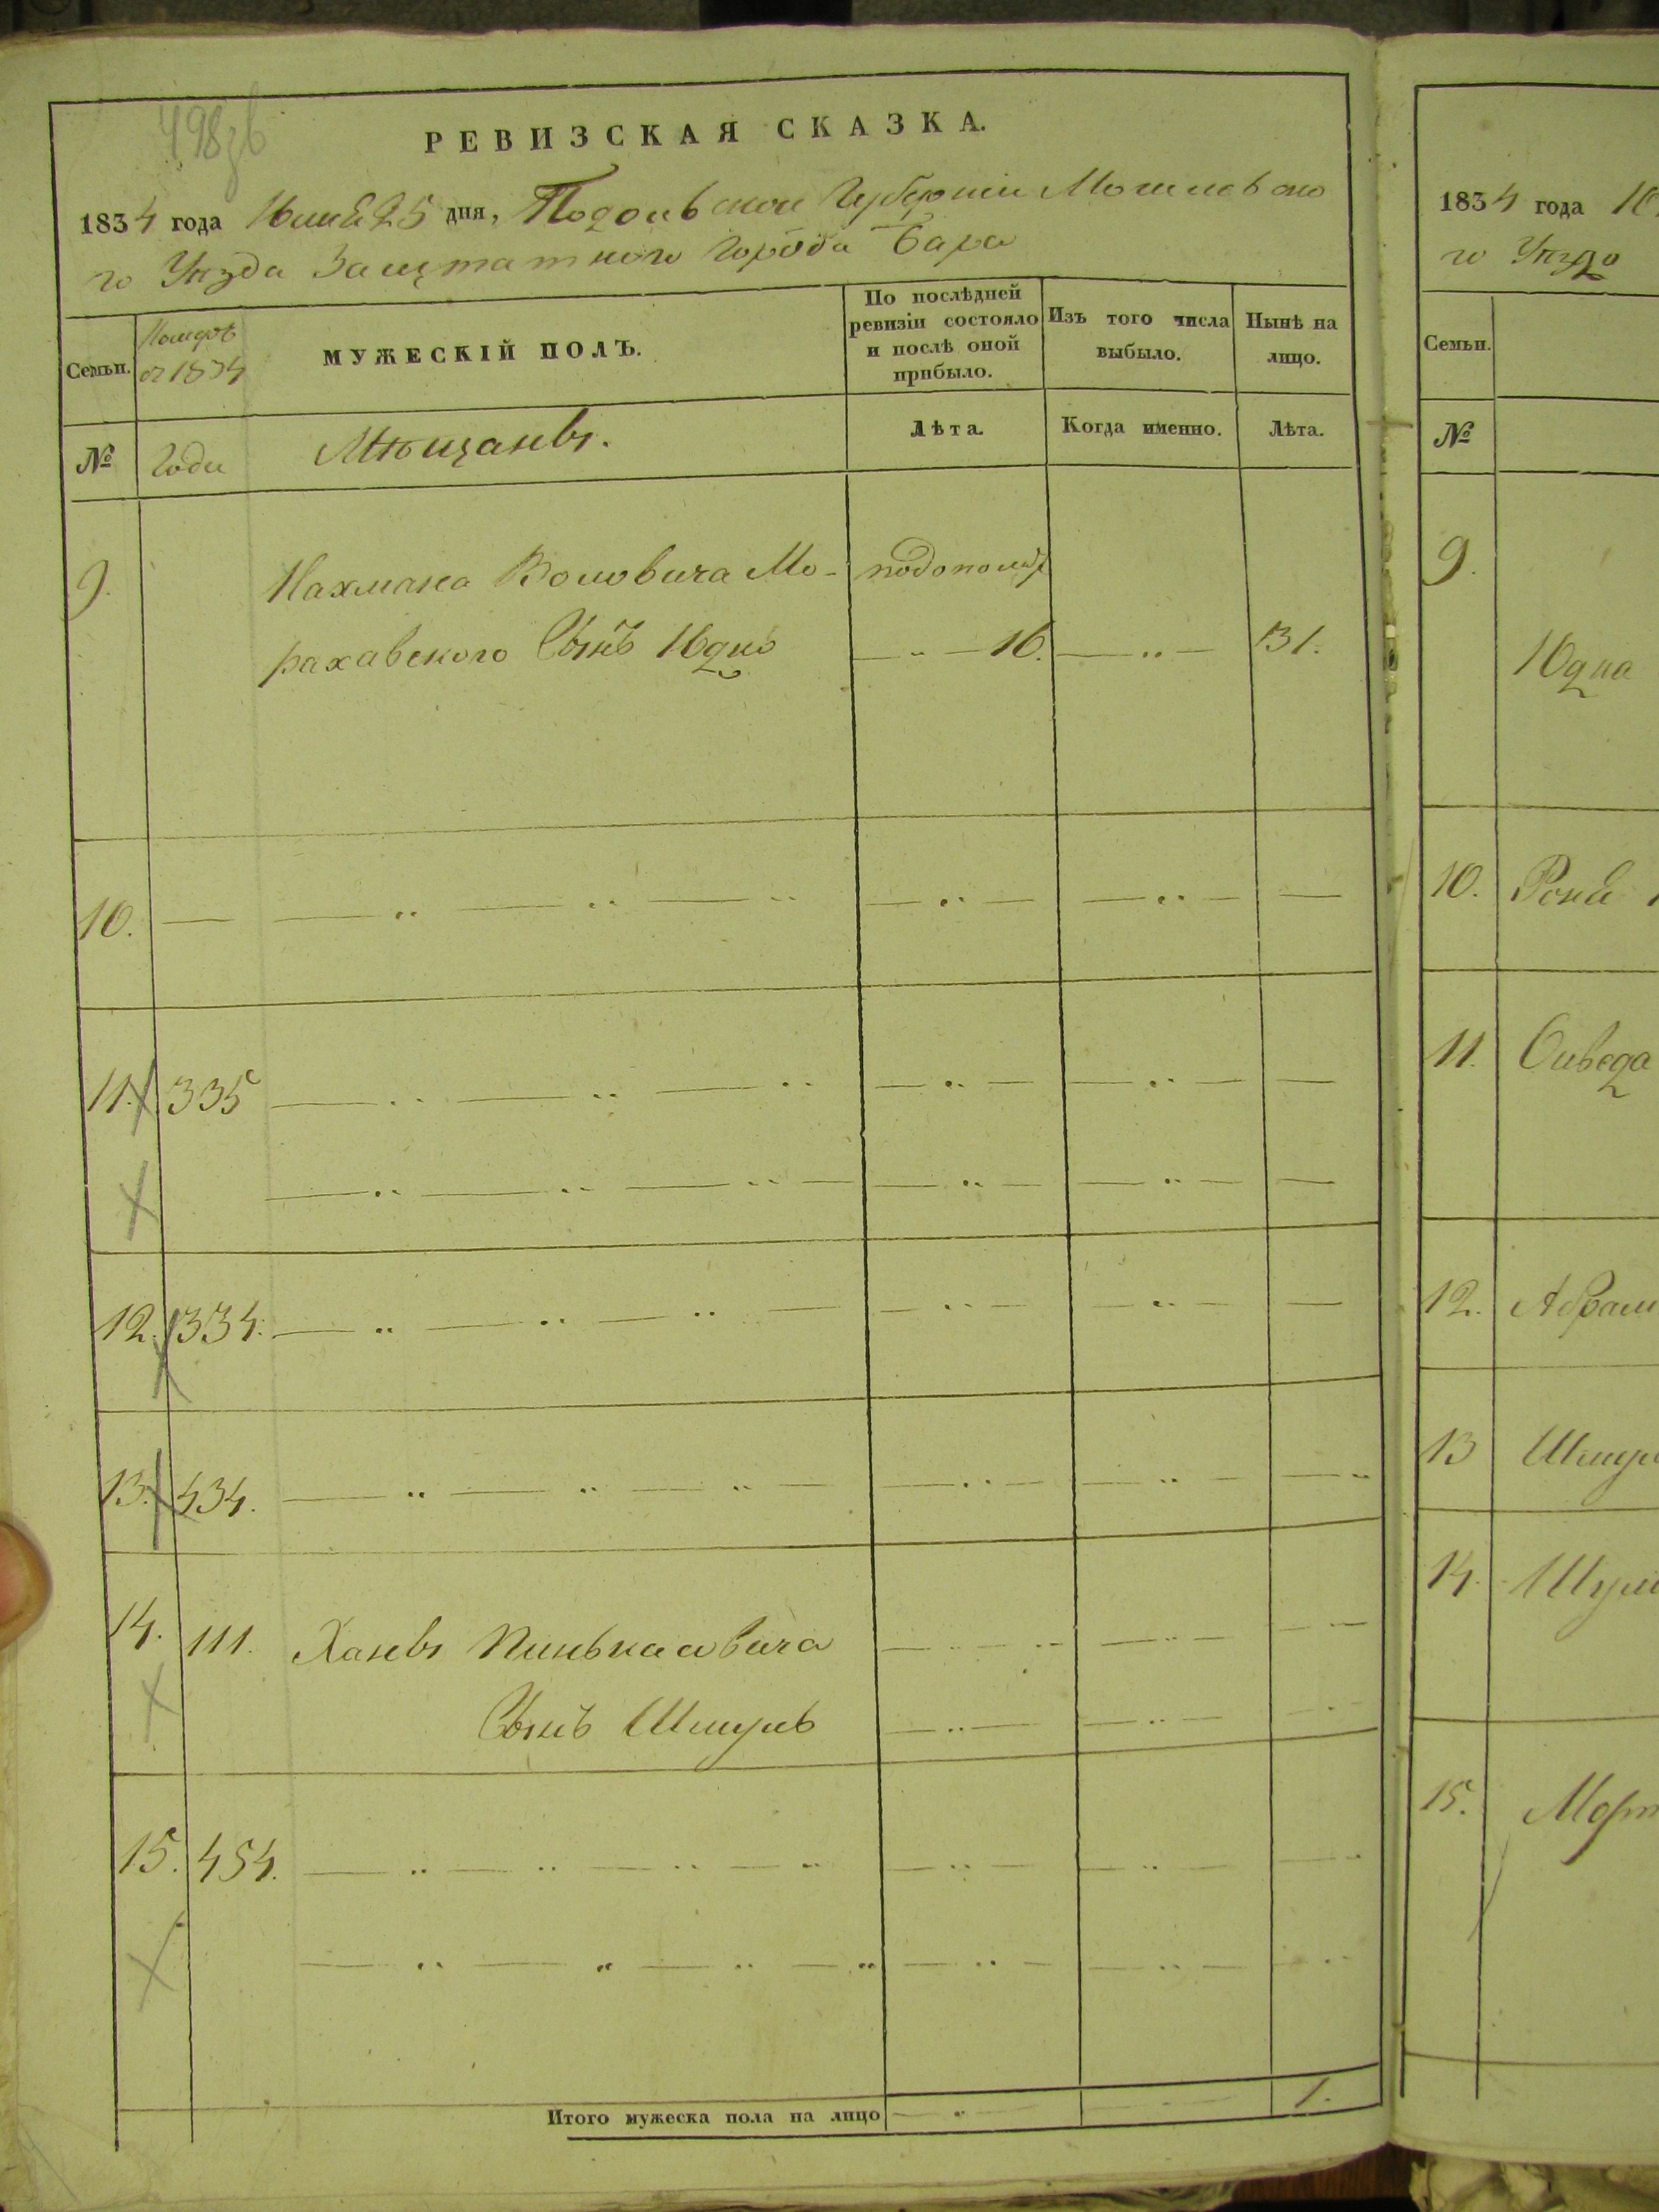 498зв
РЕВИЗСКАЯ СКАЗКА.
1834 года Юлия 25 дня, Подольской Губернiи Могилевско
го Уѣзда Заштатного Города Бара
Семьи.
Номеръ
1834
МУЖЕСКIЙ ПОЛЪ.
По послѣдней
ревизiи состояло
и послѣ оной
прибыло.
Изъ того числа
выбыло.
Нынѣ на
лицо.
№
Годы
Мѣщане.
Лѣта.
Когда именно.
Лѣта.
9.
Нахмана Воловича Мо-
рахавского Сынъ Юдко
16.
31.
10.
11. 335
12. 334.
13. 434.
14. 111. Ханы Пинькасовича
Сынъ Шмуль
15. 454.
Итого мужеска пола на лицо
1.
1834 года Ю
го Уѣзда
Семьи.
№
9.
Юдка
10.
11.
12. Абрам
13 Шмул
14.
15. Морт